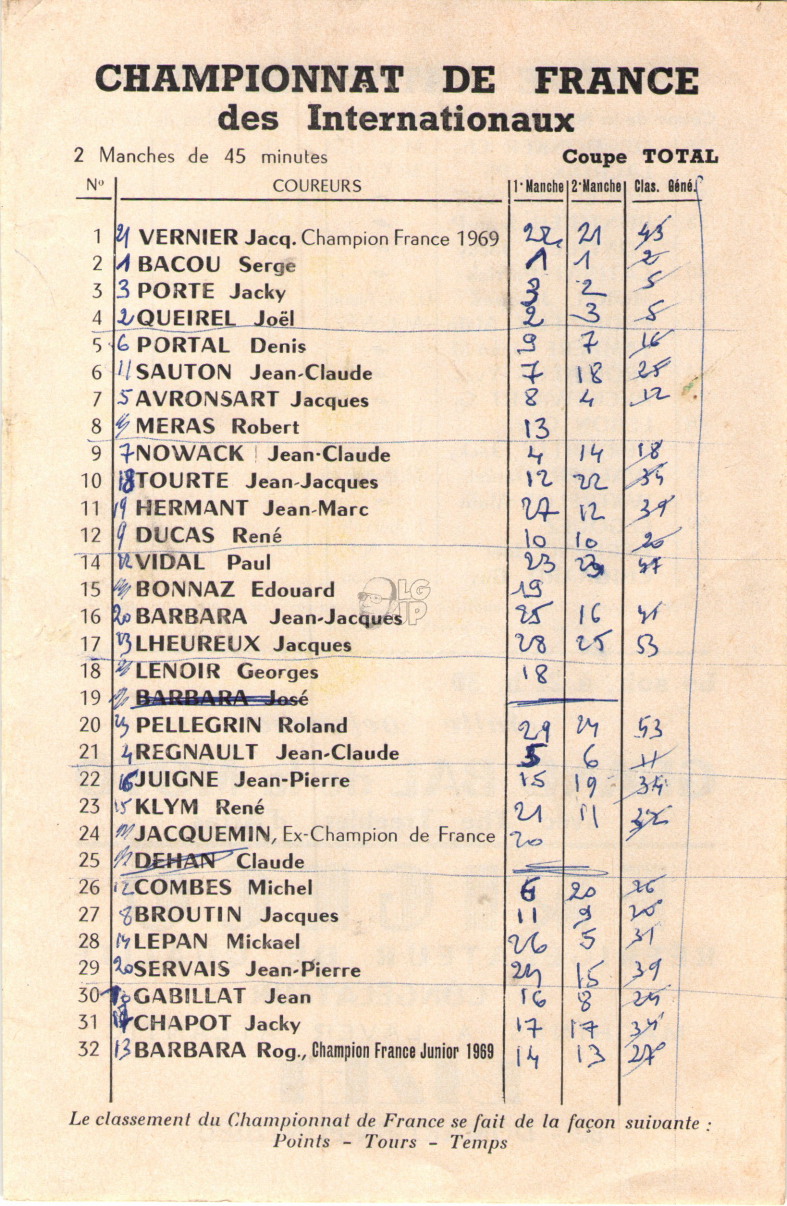 CHAMPIONNAT DE FRANCE
des Internationaux
2 Manches de 45 minutes Coupe TOTAL
Nº COUREURS 1ᵉ Manche 2ᵉ Manche Clas. Géné.
1 21 VERNIER Jacq. Champion France 1969 22 21 43
2 1 BACOU Serge 1 1 2
3 3 PORTE Jacky 3 2 5
4 2 QUEIREL Joël 2 3 5
5 6 PORTAL Denis 9 7 16
6 11 SAUTON Jean-Claude 7 18 25
7 5 AVRONSART Jacques 8 4 12
8 MERAS Robert 13
9 7 NOWACK Jean-Claude 4 14 18
10 18 TOURTE Jean-Jacques 12 22 34
11 19 HERMANT Jean-Marc 27 12 39
12 9 DUCAS René 10 10 20
14 22 VIDAL Paul 23 23 47
15 BONNAZ Edouard 19
16 20 BARBARA Jean-Jacques 25 16 41
17 23 LHEUREUX Jacques 28 25 53
18 LENOIR Georges 18
19 BARBARA José
20 23 PELLEGRIN Roland 29 24 53
21 4 REGNAULT Jean-Claude 5 6 11
22 16 JUIGNE Jean-Pierre 15 19 34
23 15 KLYM René 21 11 32
24 JACQUEMIN, Ex-Champion de France 20
25 DEHAN Claude
26 12 COMBES Michel 6 20 26
27 8 BROUTIN Jacques 11 9 20
28 14 LEPAN Mickael 26 5 31
29 20 SERVAIS Jean-Pierre 24 15 39
30 10 GABILLAT Jean 16 8 24
31 17 CHAPOT Jacky 17 17 34
32 13 BARBARA Rog., Champion France Junior 1969 14 13 27
LG
IP
Le classement du Championnat de France se fait de la façon suivante :
Points - Tours - Temps